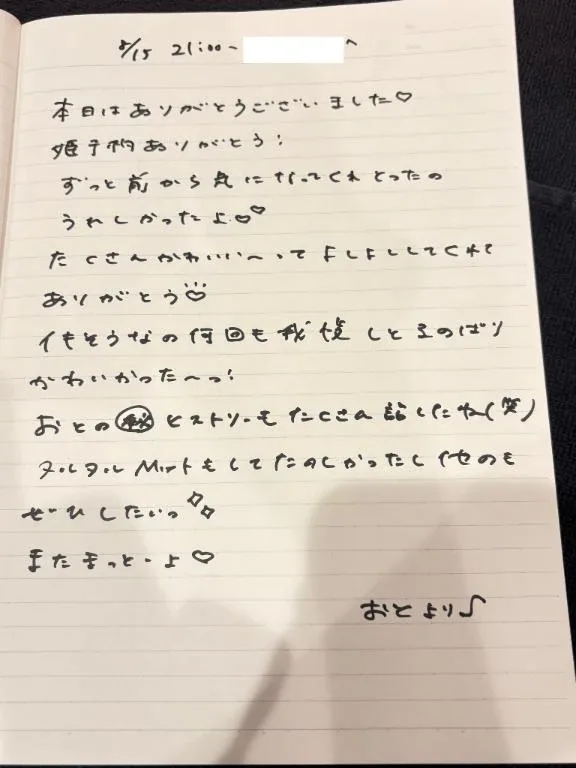 8/15 21:00~ へ
本日はありがとうございました♡
姫予約ありがとう!
ずっと前から気になってくれとったの
うれしかったよ♡♡
たくさんかわいい〜ってよしよししてくれて
ありがとう♡
イキそうなの何回も我慢しとるのばり
かわいかった〜っ!
おとの㊙ヒストリーもたくさん話したね(笑)
ヌルヌルMマットもしてたのしかったし他のも
ぜひしたいっ✧✧
またまっと-よ♡
おとより♪